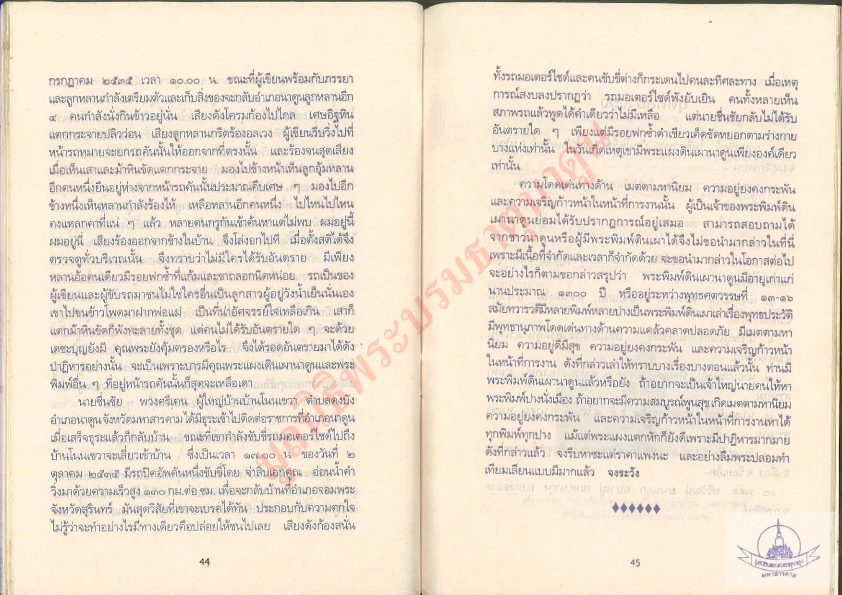 กรกฎาคม ๒๕๓๕ เวลา ๑๐.๐๐ น. ขณะที่ผู้เขียนพร้อมกับภรรยา
และลูกหลานกำลังเตรียมตัวและเก็บสิ่งของจะกลับอำเภอนาดูนลูกหลานอีก
๔ คนกำลังนั่งกินข้าวอยู่นั้น เสียงดังโครมก้องไปไกล เศษอิฐหิน
แตกกระจายปลิวว่อน เสียงลูกหลานกรีดร้องอลเวง ผู้เขียนรีบวิ่งไปที่
หน้ารถหมายจะยกรถคันนั้นให้ออกจากที่ตรงนั้น และร้องจนสุดเสียง
เมื่อเห็นเสาและม้าหินขัดแตกกระจาย มองไปข้างหน้าเห็นลูกอุ้มหลาน
อีกคนหนึ่งยืนอยู่ห่างจากหน้ารถคันนั้นประมาณคืบเศษ ๆ มองไปอีก
ข้างหนึ่งเห็นหลานกำลังร้องไห้ เหลือหลานอีกคนหนึ่ง ไปไหนไปไหน
คงแหลกคาที่แน่ ๆ แล้ว หลายคนกรูกันเข้าค้นหาแต่ไม่พบ ผมอยู่นี้
ผมอยู่นี้ เสียงร้องออกจากข้างในบ้าน จึงโล่งอกไปที เมื่อตั้งสติได้จึง
ตรวจดูทั่วบริเวณนั้น จึงทราบว่าไม่มีใครได้รับอันตราย มีเพียง
หลานอ้อคนเดียวมีรอยฟกช้ำที่แก้มและขาถลอกนิดหน่อย รถเป็นของ
ผู้เขียนและผู้ขับรถมาชนไม่ใช่ใครอื่นเป็นลูกสาวผู้อยู่วังน้ำเย็นนั่นเอง
เขาไปขนข้าวโพดมาฝากพ่อแม่ เป็นที่น่าอัศจรรย์ใจเหลือเกิน เสาก็
แตกม้าหินขัดก็พังทะลายทั้งชุด แต่คนไม่ได้รับอันตรายใด ๆ จะด้วย
เดชะบุญยังมี คุณพระยังคุ้มครองหรือไร จึงได้รอดอันตรายมาได้ดัง
ปาฏิหารอย่างนั้น จะเป็นเพราะบารมีคุณพระแผงดินเผานาดูนและพระ
พิมพ์อื่น ๆ ที่อยู่หน้ารถคันนั้นก็สุดจะเหลือเดา
นายชื่นชัย พวงศรีเคน ผู้ใหญ่บ้านบ้านโนนเขวา ตำบลดงบัง
อำเภอนาดูนจังหวัดมหาสารคามได้มีธุระเข้าไปติดต่อราชการที่อำเภอนาดูน
เมื่อเสร็จธุระแล้วก็กลับบ้าน ขณะที่เขากำลังขับขี่รถมอเตอร์ไซด์ไปถึง
บ้านโนนเขวาจะเลี้ยวเข้าบ้าน ซึ่งเป็นเวลา ๑๗.๐๐ น. ของวันที่ ๒
ตุลาคม ๒๕๓๕ มีรถปิคอัพคันหนึ่งขับขี่โดย จ่าสิบเอกคูณ อ่อนน้ำคำ
วิ่งมาด้วยความเร็วสูง ๑๓๐ กม.ต่อ ชม. เพื่อจะกลับบ้านที่อำเภอจอมพระ
จังหวัดสุรินทร์ มันสุดวิสัยที่เขาจะเบรคได้ทัน ประกอบกับความตกใจ
ไม่รู้ว่าจะทำอย่างไรมีทางเดียวคือปล่อยให้ชนไปเลย เสียงดังก้องสนั่น
44
ทั้งรถมอเตอร์ไซด์และคนขับขี่ต่างก็กระเด็นไปคนละทิศละทาง เมื่อเหตุ
การณ์สงบลงปรากฏว่า รถมอเตอร์ไซด์พังยับเยิน คนทั้งหลายเห็น
สภาพรถแล้วพูดได้คำเดียวว่าไม่มีเหลือ แต่นายชื่นชัยกลับไม่ได้รับ
อันตรายใด ๆ เพียงแต่มีรอยฟกช้ำดำเขียวเคล็ดขัดหยอกตามร่างกาย
บางแห่งเท่านั้น ในวันเกิดเหตุเขามีพระแผงดินเผานาดูนเพียงองค์เดียว
เท่านั้น
ความโดดเด่นทางด้าน เมตตามหานิยม ความอยู่ยงคงกระพัน
และความเจริญก้าวหน้าในหน้าที่การงานนั้น ผู้เป็นเจ้าของพระพิมพ์ดิน
เผานาดูนย่อมได้รับปรากฏการณ์อยู่เสมอ สามารถสอบถามได้
จากชาวนาดูนหรือผู้มีพระพิมพ์ดินเผาได้จึงไม่ขอนำมากล่าวในที่นี้
เพราะมีเนื้อที่จำกัดและเวลาก็จำกัดด้วย จะขอนำมากล่าวในโอกาสต่อไป
จะอย่างไรก็ตามขอกล่าวสรุปว่า พระพิมพ์ดินเผานาดูนมีอายุเก่าแก่
นานประมาณ ๑๓๐๐ ปี หรืออยู่ระหว่างพุทธศตวรรษที่ ๑๓-๑๖
สมัยทวารวดีมีหลายพิมพ์หลายปางเป็นพระพิมพ์ดินเผาเล่าเรื่องพุทธประวัติ
มีพุทธานุภาพโดดเด่นทางด้านความแคล้วคลาดปลอดภัย มีเมตตามหา
นิยม ความอยู่ดีมีสุข ความอยู่ยงคงกระพัน และความเจริญก้าวหน้า
ในหน้าที่การงาน ดังที่กล่าวเล่าให้ทราบบางเรื่องบางตอนแล้วนั้น ท่านมี
พระพิมพ์ดินเผานาดูนแล้วหรือยัง ถ้าอยากจะเป็นเจ้าใหญ่นายคนให้หา
พระพิมพ์ปางนั่งเมือง ถ้าอยากจะมีความสมบูรณ์พูนสุขเกิดเมตตามหานิยม
ความอยู่ยงคงกระพัน และความเจริญก้าวหน้าในหน้าที่การงานหาได้
ทุกพิมพ์ทุกปาง แม้แต่พระแผงแตกหักก็ยังดีเพราะมีปาฏิหารมากมาย
ดังที่กล่าวแล้ว จงรีบหาซะแต่ราคาแพงนะ และอย่าลืมพระปลอมทำ
เทียมเลียนแบบมีมากแล้ว จงระวัง
♦♦♦♦♦♦
45
มูลนิธิพระบรมธาตุนาดูน
มหาสารคาม